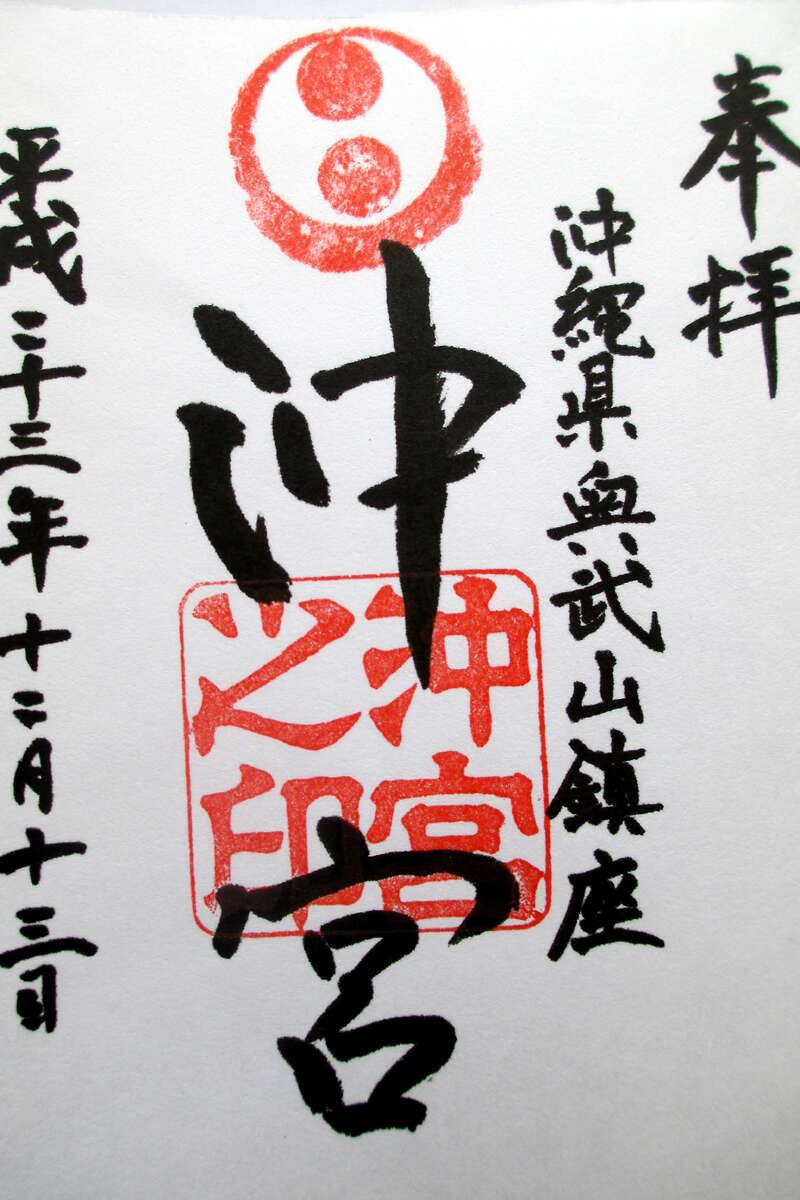 奉拝
沖縄県奥武山鎮座
沖宮
沖宮之印
平成二十三年十二月十三日